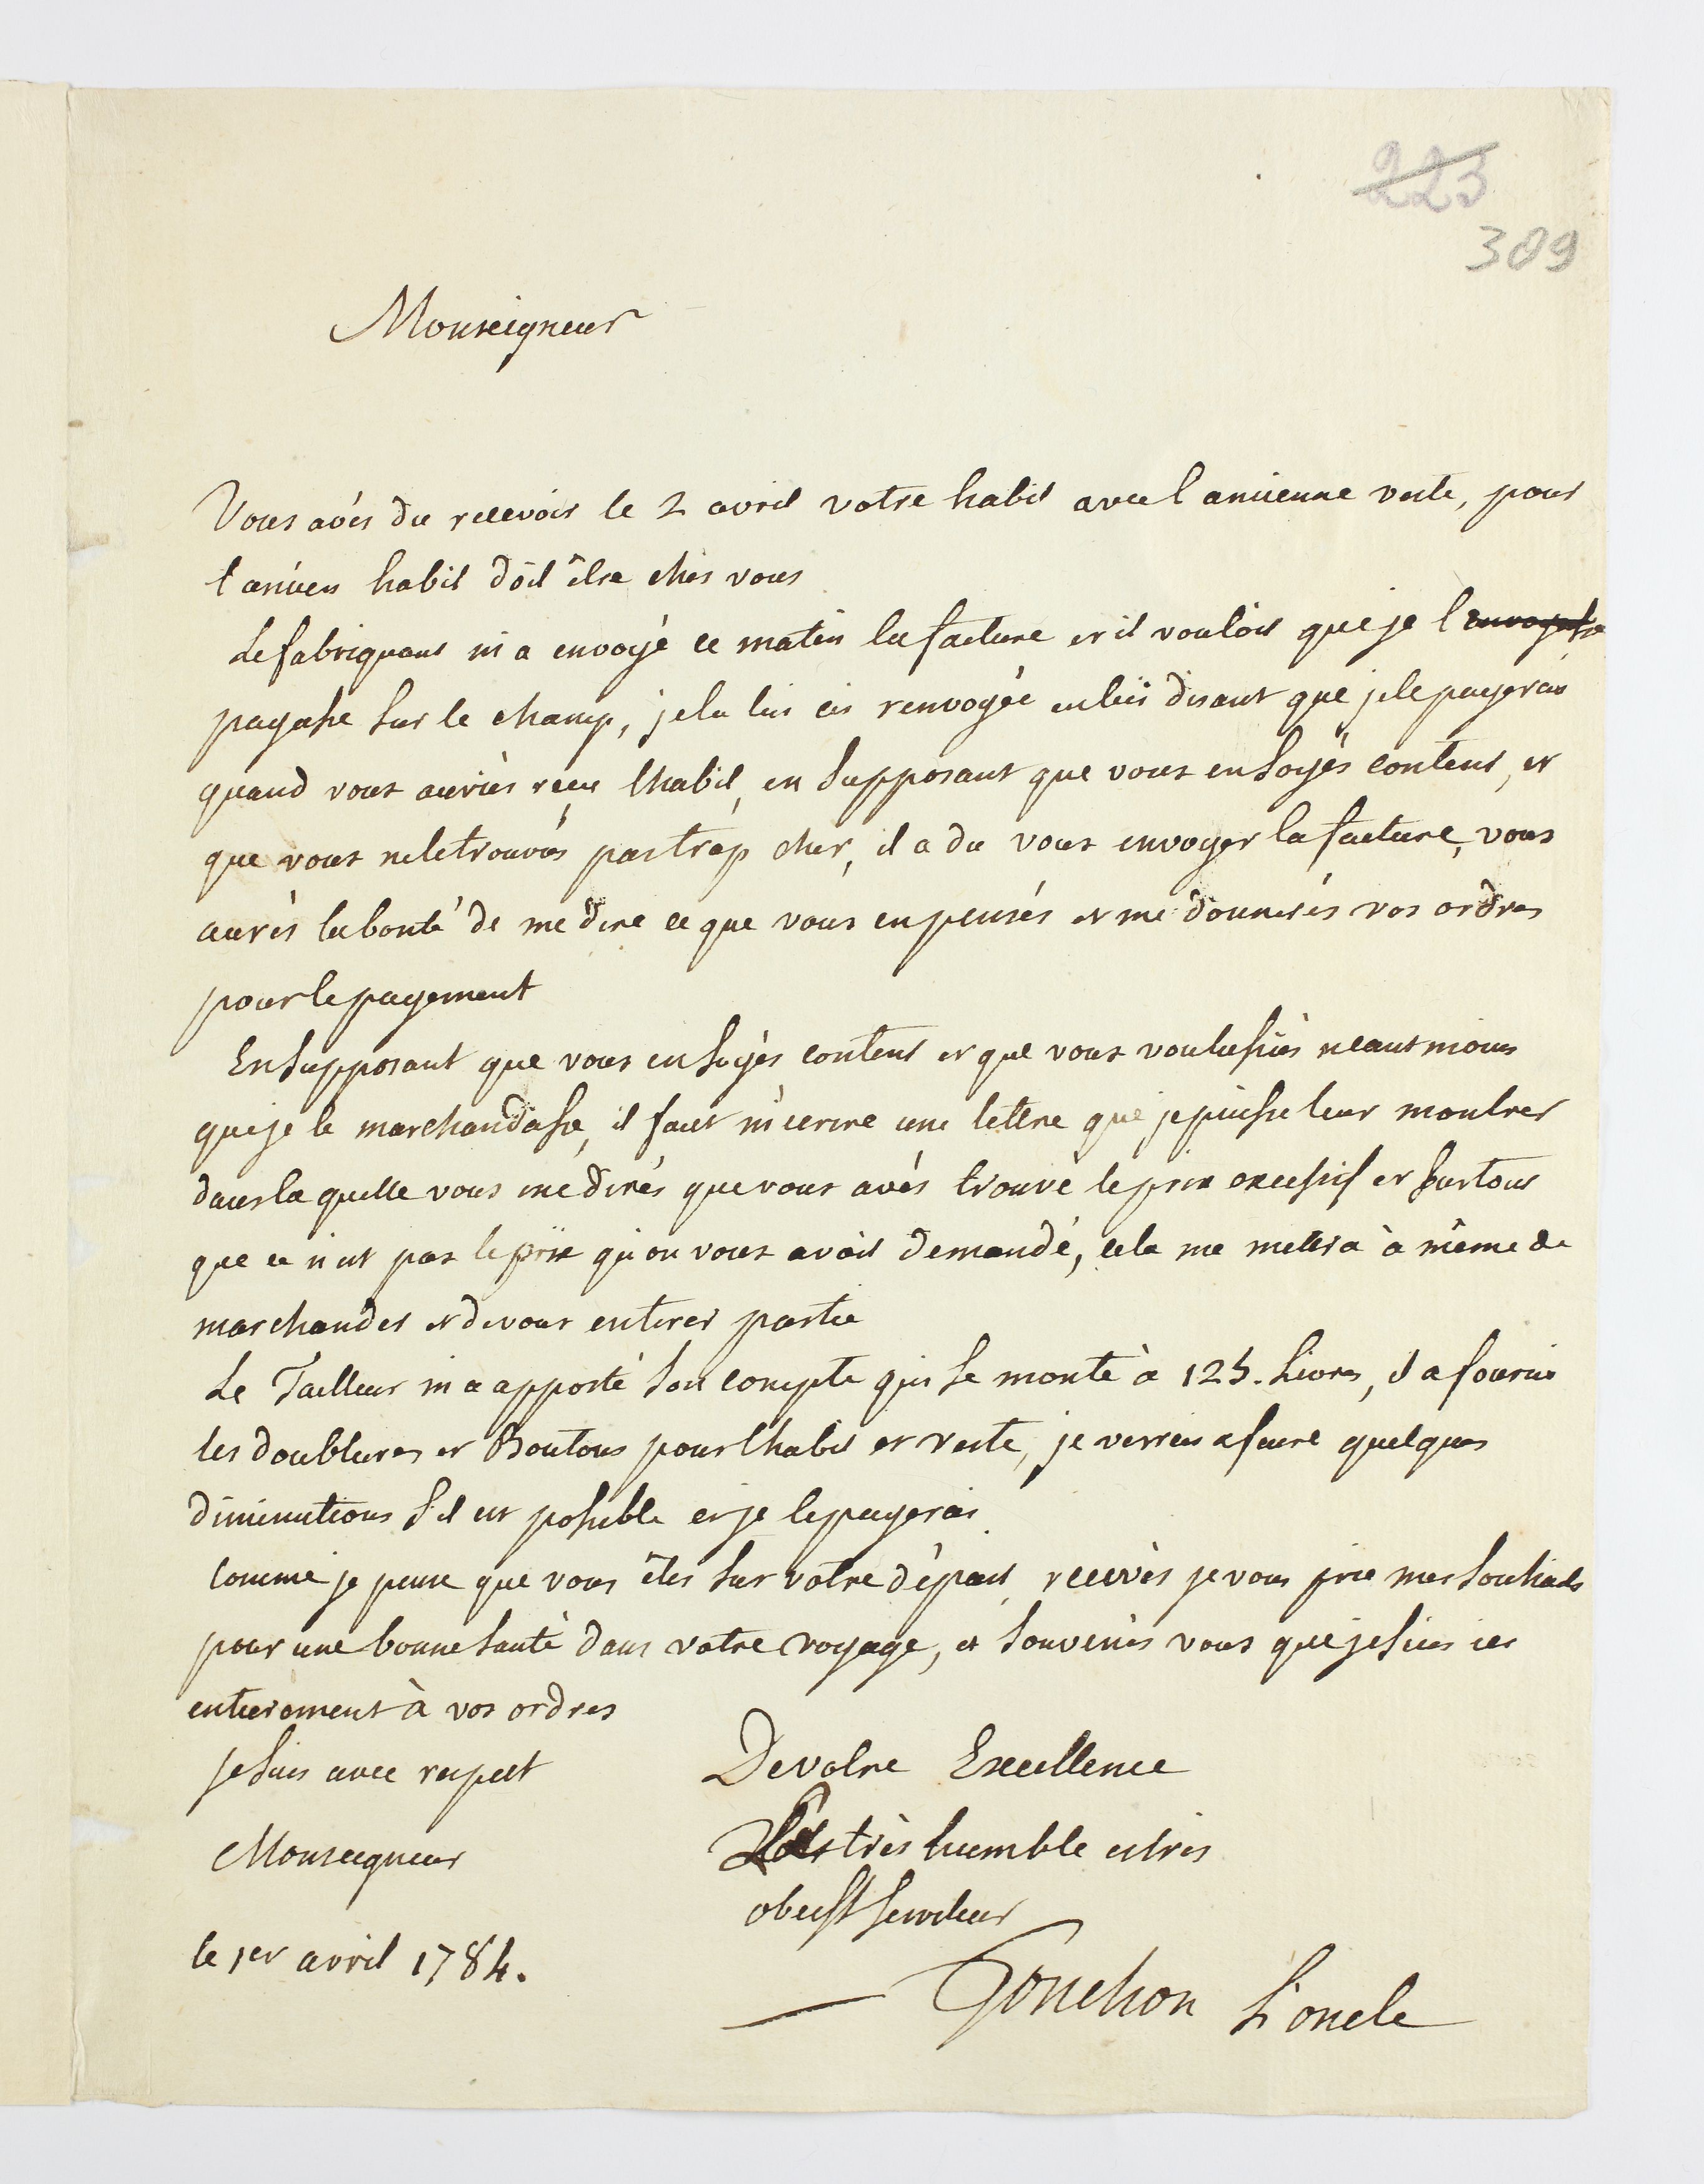 223
309
Monseigneur
Vous avés du recevoir le 2 avril votre habit avec l ancienne veste, pour
l ancien habit doit être chés vous
Le fabriquant m a envoyé ce matin la facture et il vouloit que je l envoyasse
payasse sur le champ, je la lui ai renvoyée en lui disant que je le payerai
quand vous auriés reçu l habit, en supposant que vous en soyés content, et
que vous ne le trouvés pas trop cher, il a du vous envoyer la facture, vous
aurés la bonté de me dire ce que vous en pensés et me donnerés vos ordres
pour le payement
En supposant que vous en soyés content et que vous voulussiés neantmoins
que je le marchandasse, il faut m'ecrire une lettre que je puisse leur montrer
dans la quelle vous me dirés que vous avés trouvé le prix excessif et surtout
que ce n est pas le prix qu on vous avoit demandé, cela me mettra à même de
marchander et de vous en tirer partie
Le Tailleur m a apporté son compte qui se monte à 125. Livres, il a fourni
les doublures et Boutons pour l habit et veste, je verrai a faire quelques
diminutions s il est possible et je le payerai
Comme je pense que vous êtes sur votre départ, recevés je vous prie mes souhaits
pour une bonne santé dans votre voyage, et souvenés vous que je suis ici
entierement à vos ordres
Je suis avec respect
De votre Excellence
Monseigneur
très humble et très
obeisst serviteur
le 1er avril 1784.
Gonchon L'oncle